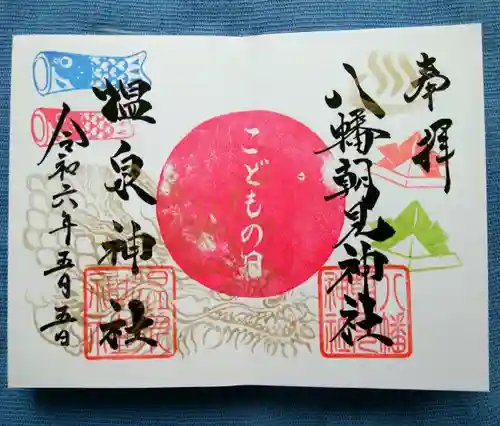 奉拝
八幡朝見神社
こどもの日
温泉神社
令和六年五月五日